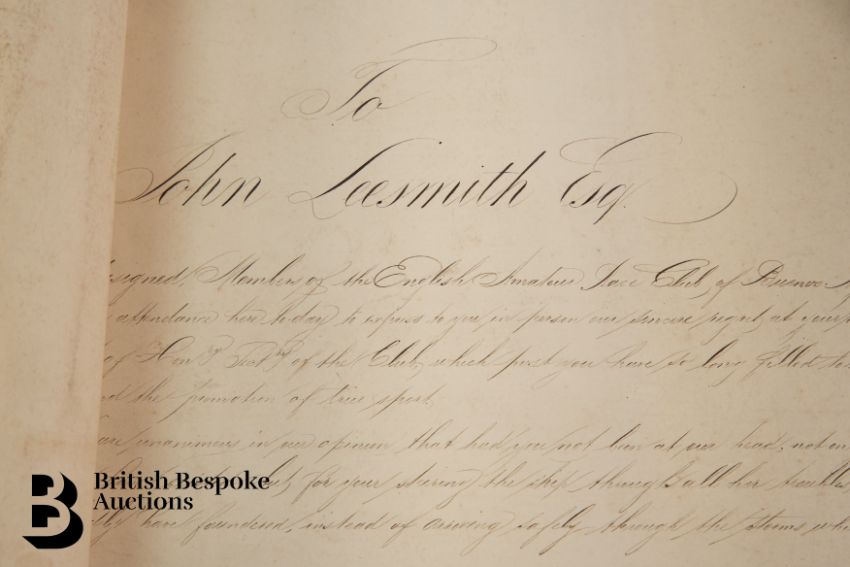 To
John Leesmith Esq.
signed, Members of the English Amateur Race Club, of Buenos
attendance here to-day to express to you in person our sincere regret, at your
of Hon.y Sect.y of the Club, which post you have so long filled
the promotion of true sport.
are unanimous in our opinion that had you not been at our head, not
for your steering the ship through all her troubles
have foundered, instead of arriving safely through the storms
British Bespoke
Auctions